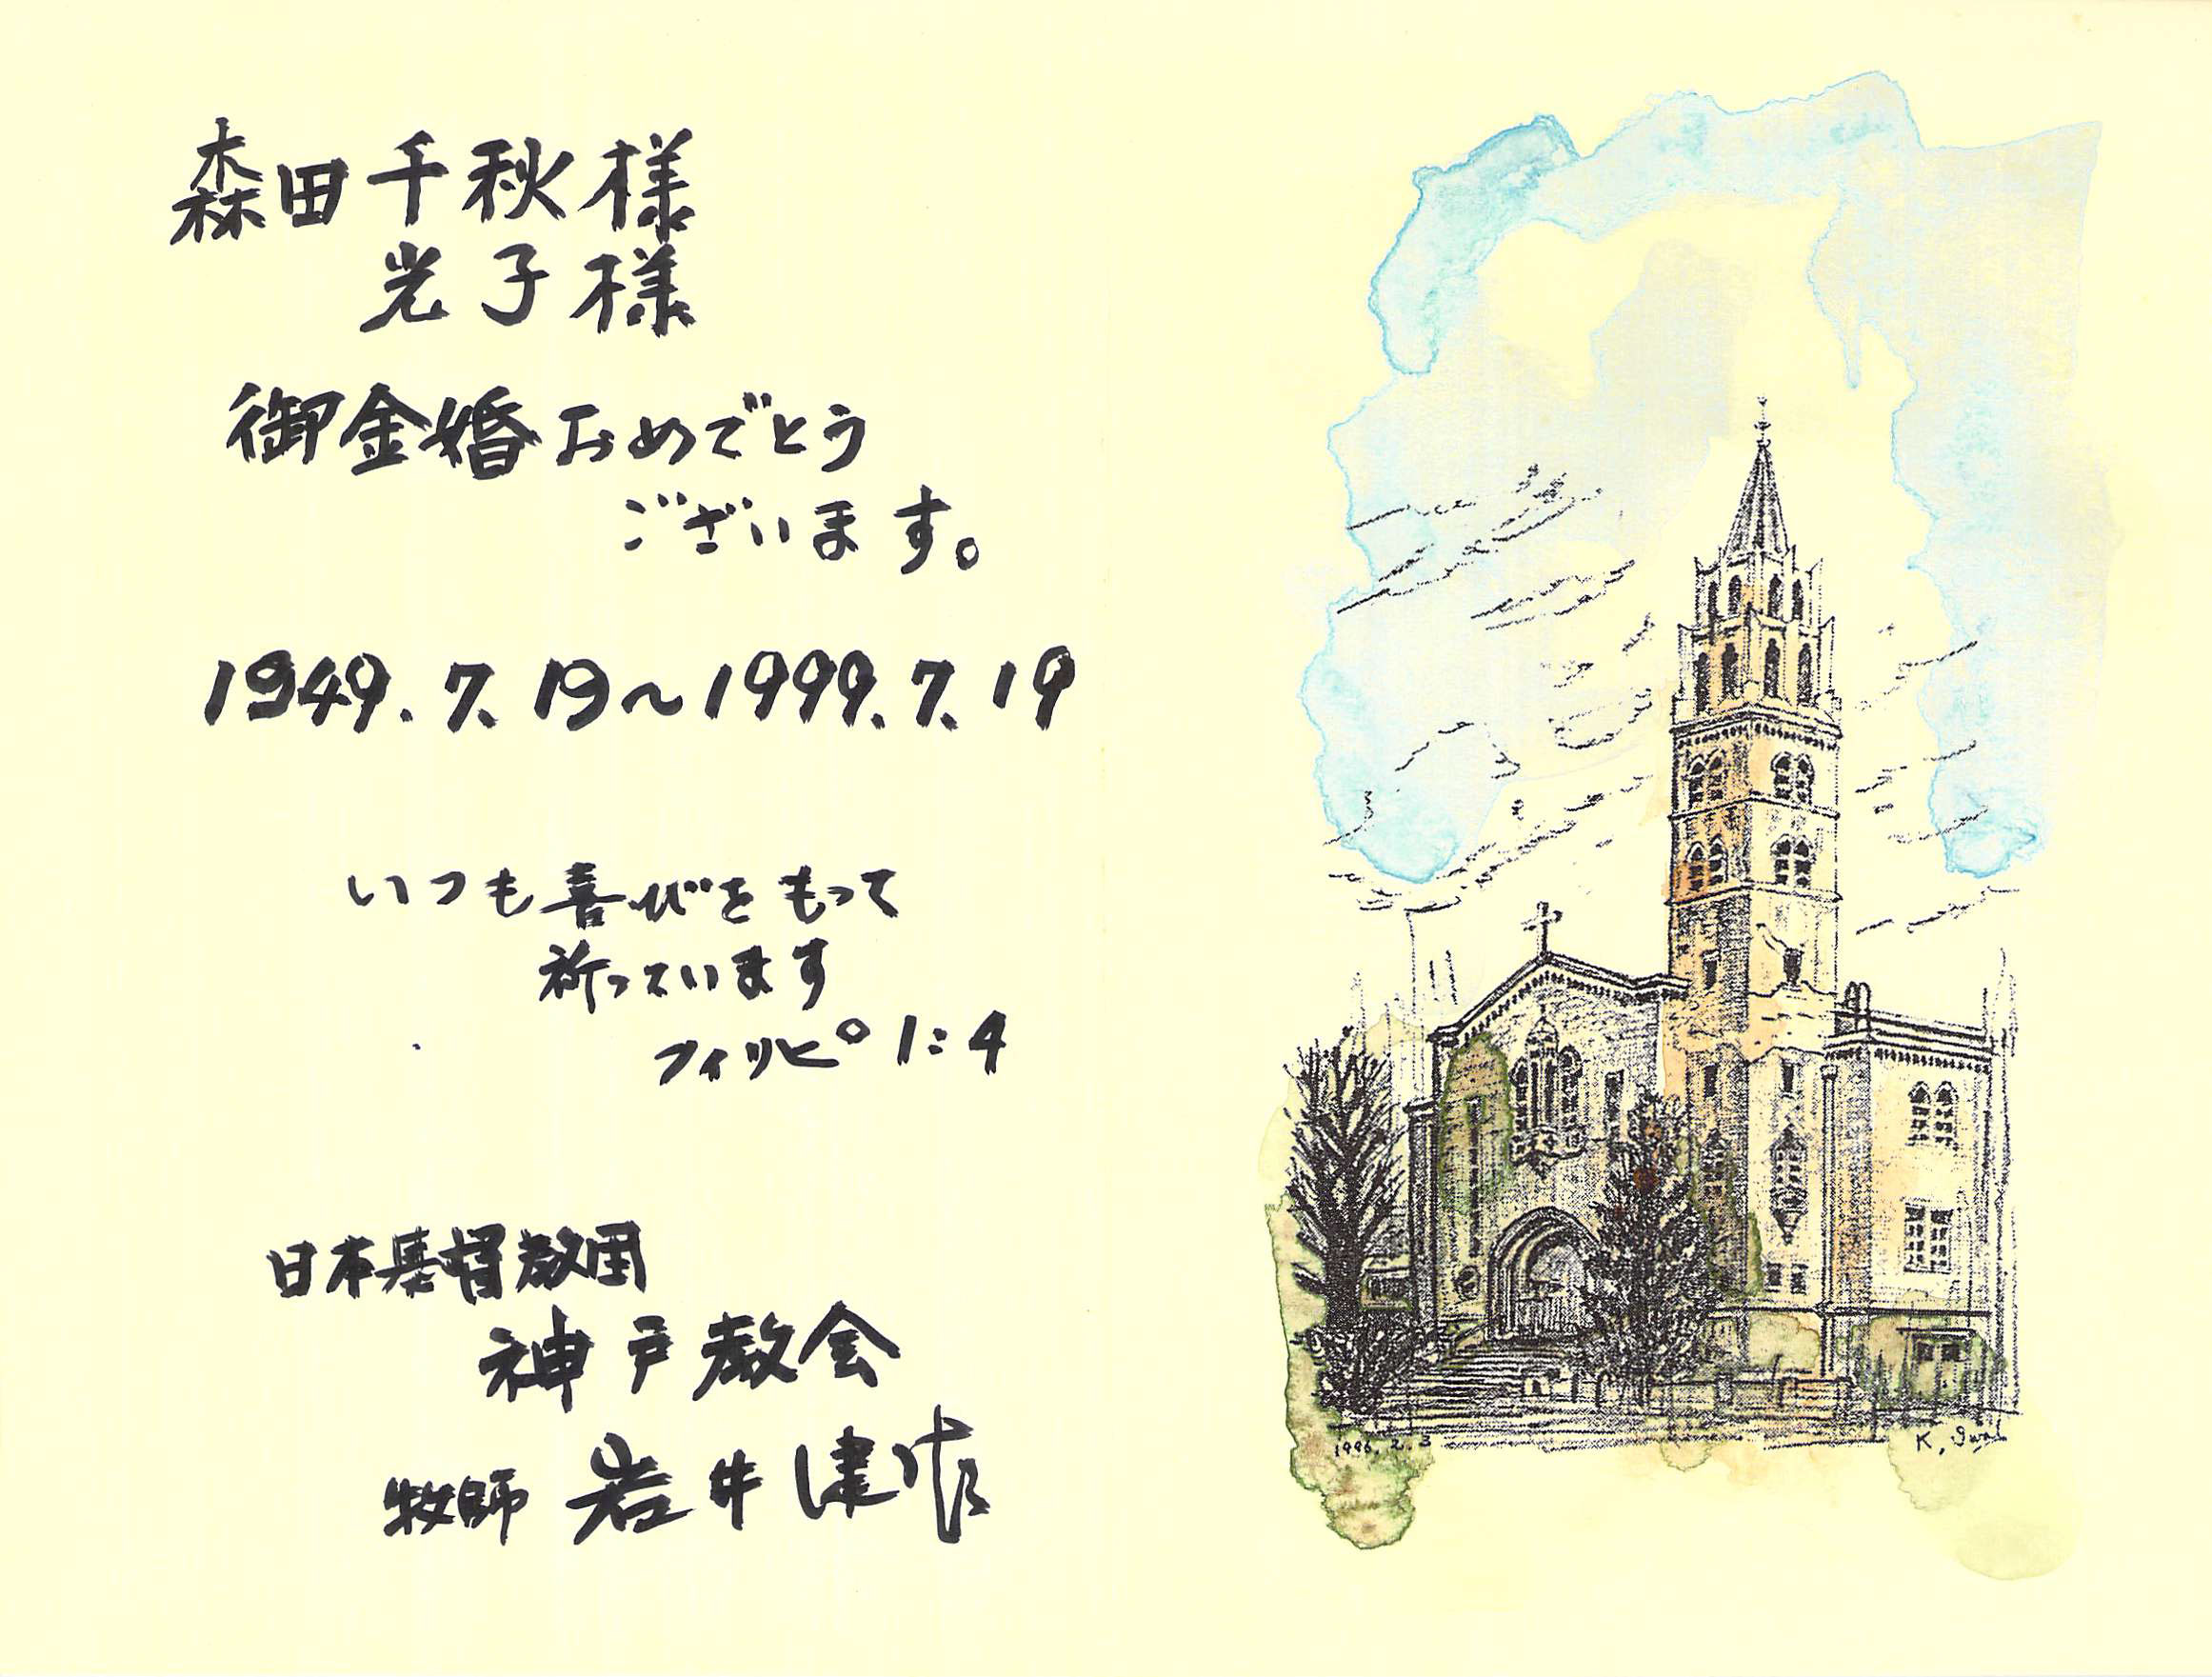 森田千秋様
光子様
御金婚おめでとう
ございます。
1949.7.19～1999.7.19
いつも喜びをもって
祈っています
フィリピ 1:4
日本基督教団
神戸教会
牧師 岩井健作
1996.2.3
K, Iwai